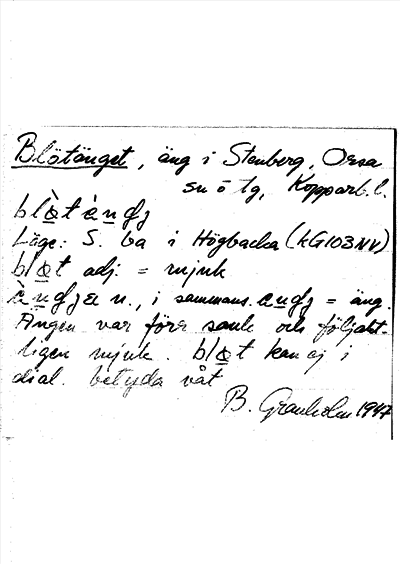 Blötänget, äng i Stenberg, Orsa
sn o tg, Kopparb. l.
blø̀tæ̀ngʒ
Läge: S. ba i Högbacka (kG103NV)
bløt adj. = mjuk
æ̀ngʒæ n., i sammans. ængʒ = äng.
Ängen var förr sank och följakt-
ligen mjuk. bløt kan ej i
dial. betyda våt
B. Granholm 1947